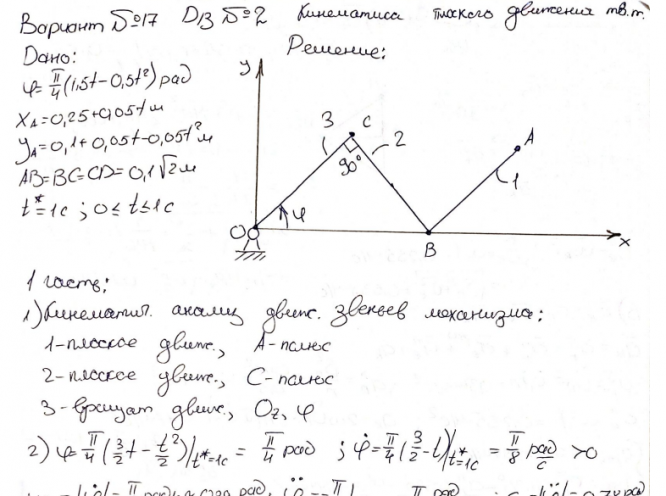 Вариант №17 ДЗ №2 Кинематика плоского движения тв.т.
Дано:
Решение:
φ=π/4(1,5t-0,5t²) рад
x_A=0,25+0,05t м
y_A=0,1+0,05t-0,05t² м
AB=BC=CD=0,1√2 м
t*=1c ; 0≤t≤1c
y
3 C 2 A
90°
1
O φ
B x
1 часть:
1) Кинематич. анализ движ. звеньев механизма:
1-плоское движ., A-полюс
2-плоское движ., C-полюс
3-вращат движ., Oz, φ
2) φ=π/4(3/2t-t²/2)|t*=1c = π/4 рад ; φ̇=π/4(3/2-t)|t*=1c = π/8 рад/c >0